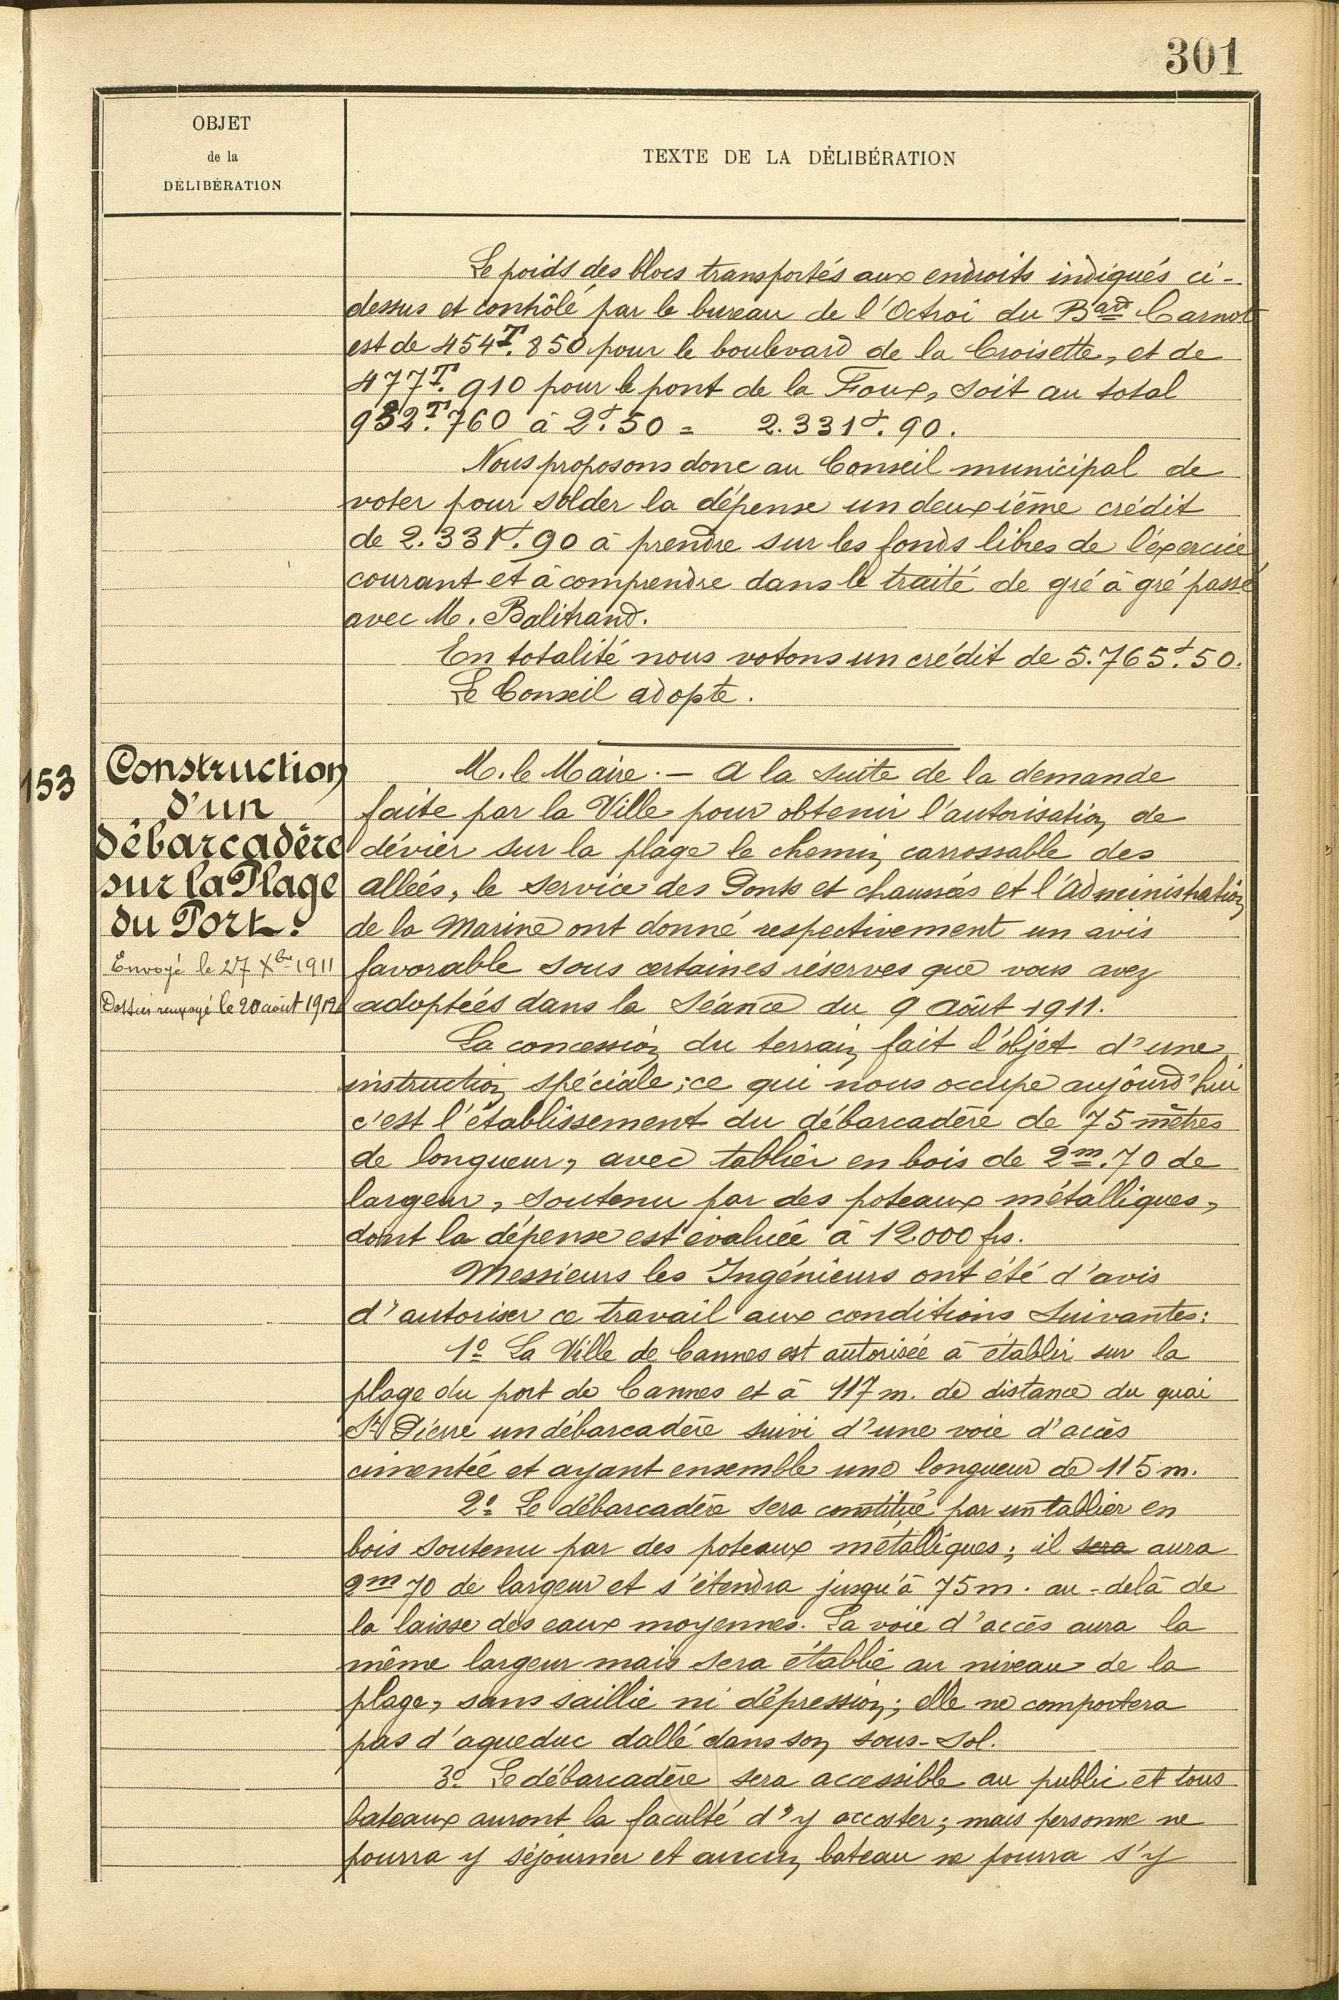 301
OBJET
de la
DÉLIBÉRATION
TEXTE DE LA DÉLIBÉRATION
Le poids des blocs transportés aux endroits indiqués ci-
dessus et contrôlé par le bureau de l'Octroi du Bard Carnot
est de 454T.850 pour le boulevard de la Croisette, et de
477T.910 pour le pont de la Foux, soit au total
932T.760 à 2f.50 = 2.331f.90.
Nous proposons donc au Conseil municipal de
voter pour solder la dépense un deuxième crédit
de 2.331f.90 à prendre sur les fonds libres de l'exercice
courant et à comprendre dans le traité de gré à gré passé
avec M. Balitrand.
En totalité nous votons un crédit de 5.765f.50.
Le Conseil adopte.
153
Construction
d'un
débarcadère
sur la Plage
du Port.
Envoyé le 27 Xbre 1911
Dossier renvoyé le 20 août 1912
M. le Maire. — A la suite de la demande
faite par la Ville pour obtenir l'autorisation de
dévier sur la plage le chemin carrossable des
allées, le service des Ponts et chaussées et l'Administration
de la Marine ont donné respectivement un avis
favorable sous certaines réserves que vous avez
adoptées dans la séance du 9 Août 1911.
La concession du terrain fait l'objet d'une
instruction spéciale; ce qui nous occupe aujourd'hui
c'est l'établissement du débarcadère de 75 mètres
de longueur, avec tablier en bois de 2m.70 de
largeur, soutenu par des poteaux métalliques,
dont la dépense est évaluée à 12.000 frs.
Messieurs les Ingénieurs ont été d'avis
d'autoriser ce travail aux conditions suivantes:
1o La Ville de Cannes est autorisée à établir sur la
plage du port de Cannes et à 117 m. de distance du quai
St Pierre un débarcadère suivi d'une voie d'accès
cimentée et ayant ensemble une longueur de 115 m.
2o Le débarcadère sera constitué par un tablier en
bois soutenu par des poteaux métalliques; il sera aura
2m70 de largeur et s'étendra jusqu'à 75 m. au-delà de
la laisse des eaux moyennes. La voie d'accès aura la
même largeur mais sera établie au niveau de la
plage, sans saillie ni dépression; elle ne comportera
pas d'aqueduc dallé dans son sous-sol.
3o Le débarcadère sera accessible au public et tous
bateaux auront la faculté d'y accoster; mais personne ne
pourra y séjourner et aucun bateau ne pourra s'y